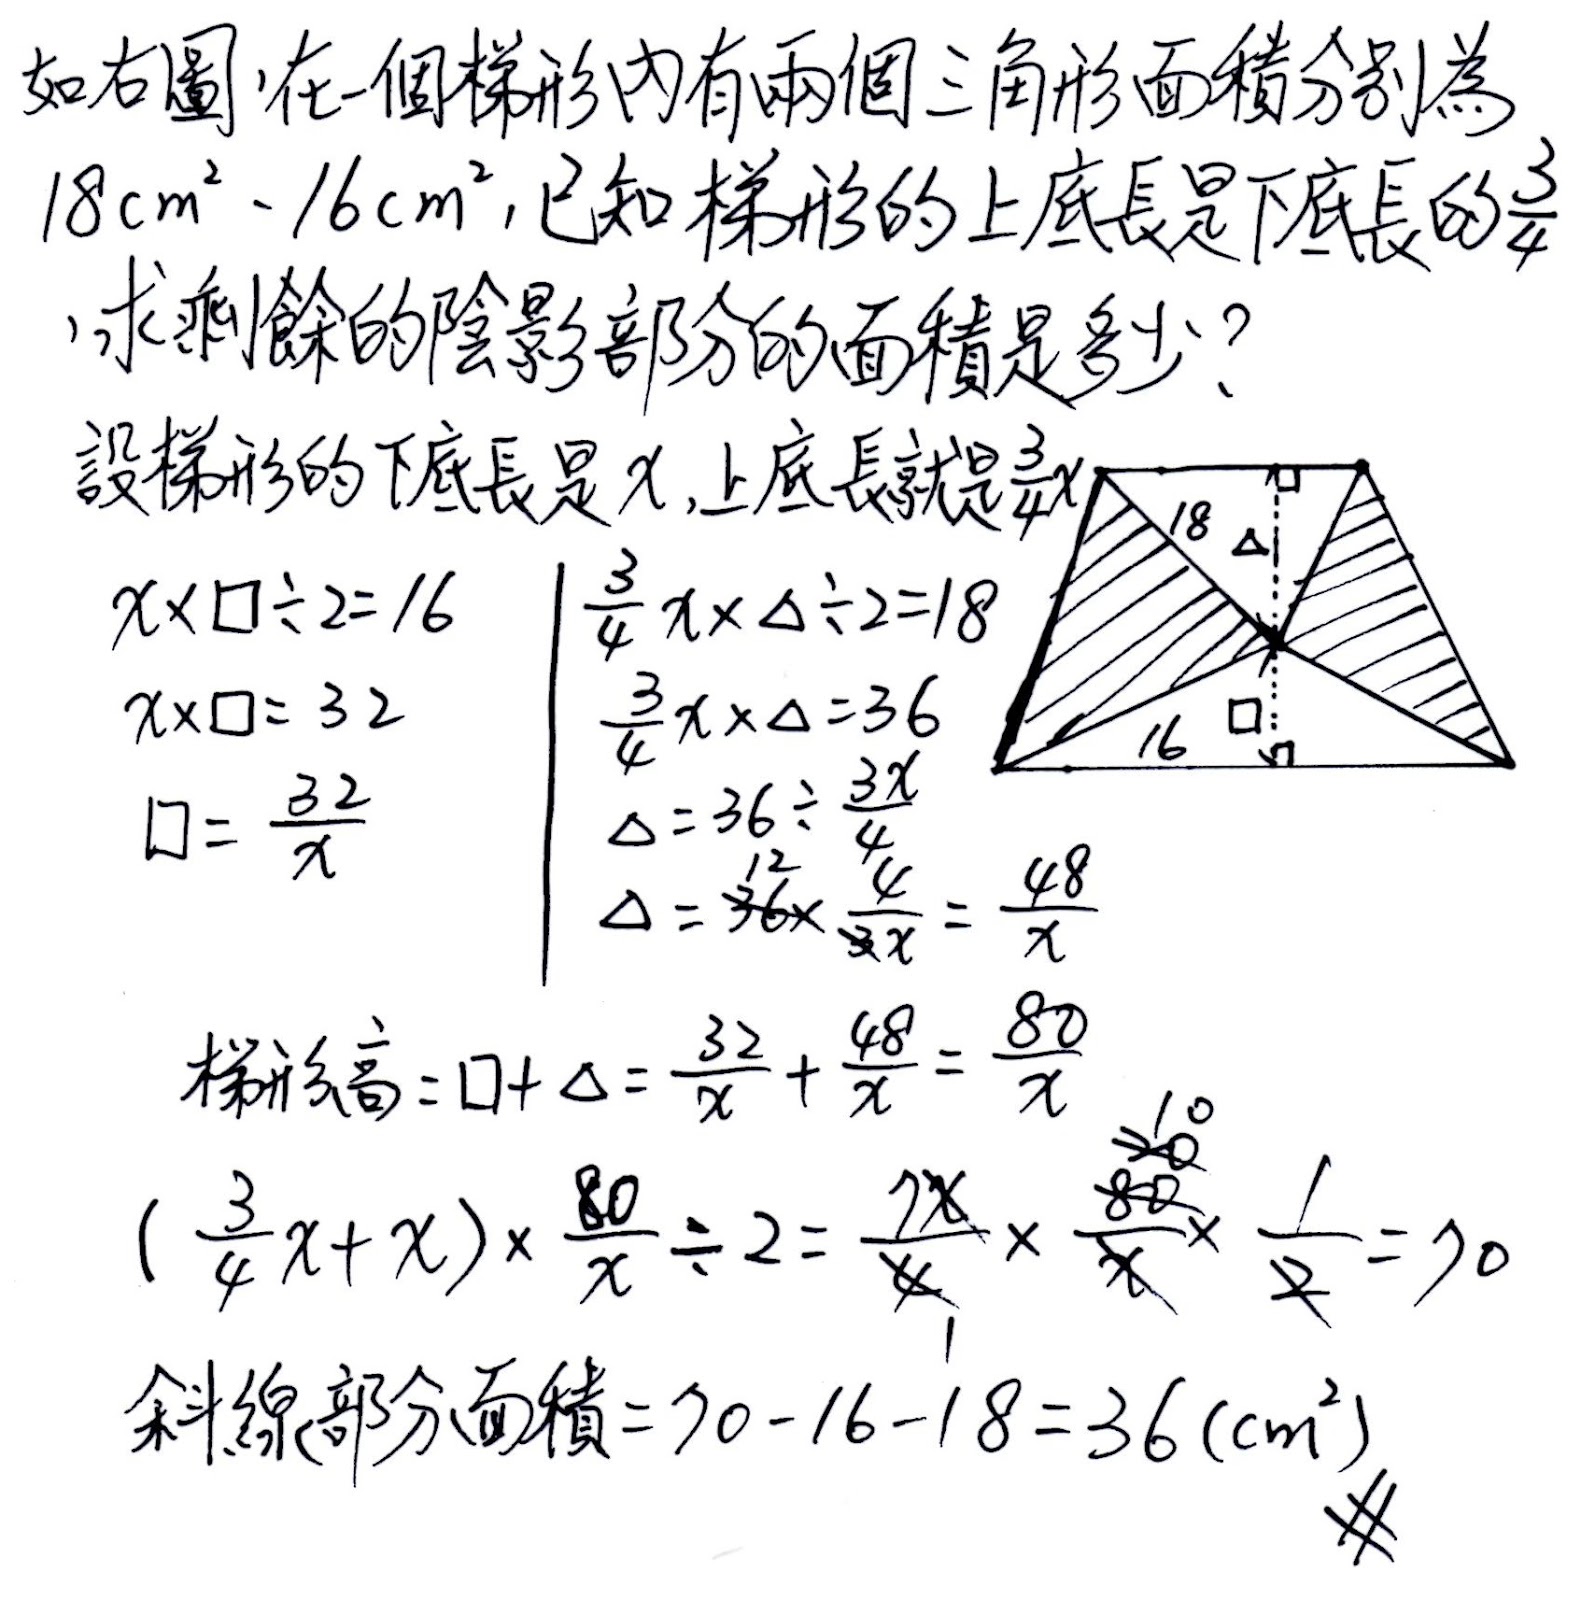 如右圖,在一個梯形內有兩個三角形面積分別為
18cm²、16cm²,已知梯形的上底長是下底長的3/4
,求剩餘的陰影部分的面積是多少?
設梯形的下底長是x,上底長就是3/4x
18
△
□
16
x×□÷2=16
x×□=32
□=32/x
3/4x×△÷2=18
3/4x×△=36
△=36÷3x/4
△=36×4/3x=48/x
12
梯形高=□+△=32/x+48/x=80/x
10
20
(3/4x+x)×80/x÷2=7x/4×80/x×1/2=70
1
斜線部分面積=70-16-18=36(cm²)
#